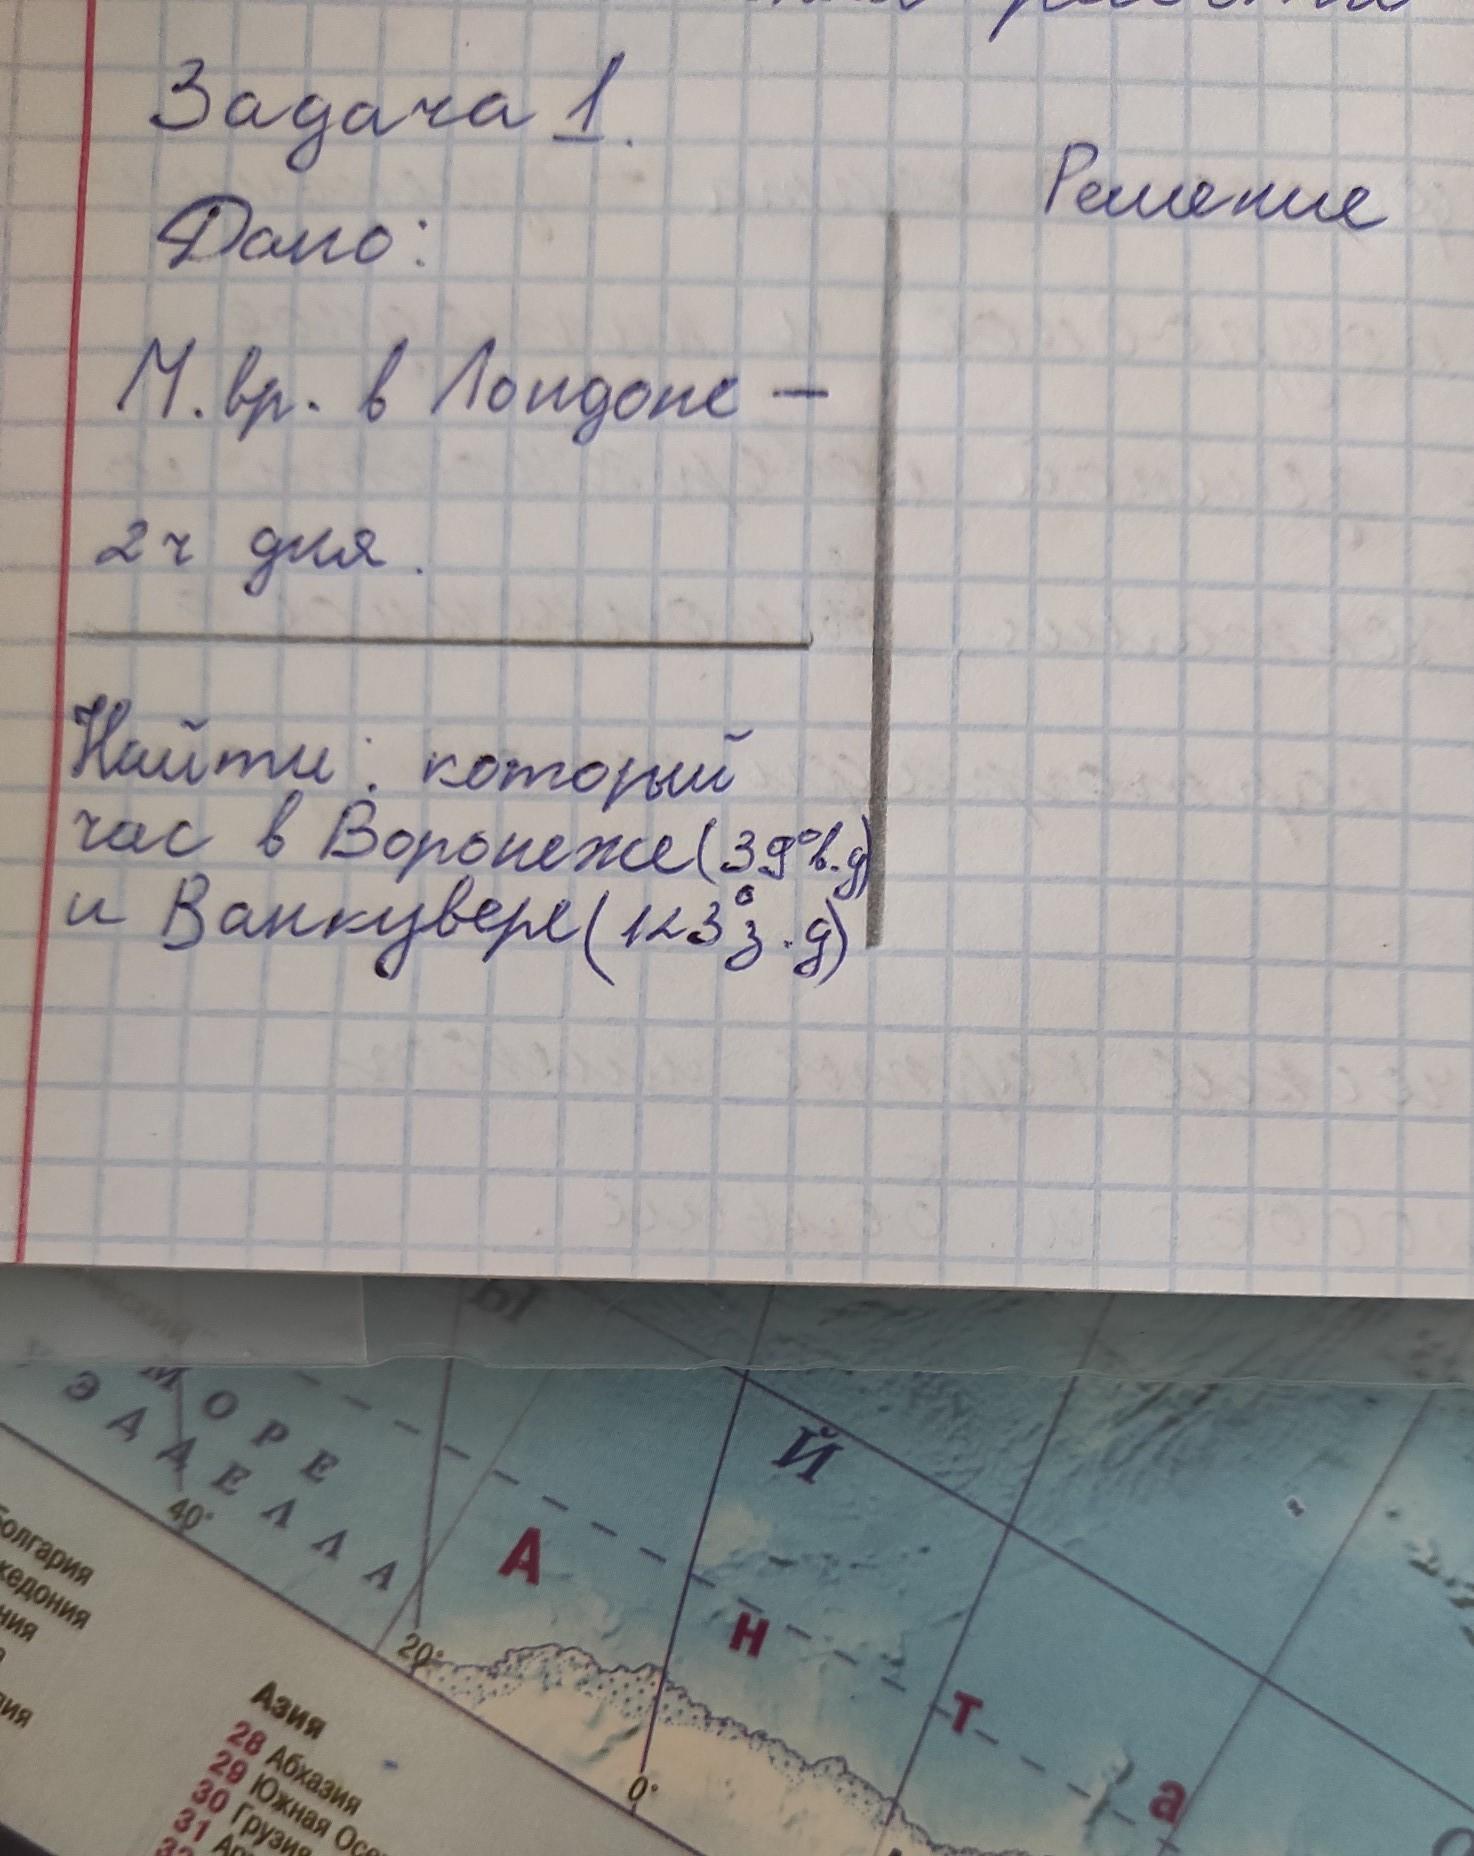 Задача 1.
Решение
Дано:
М. вр. в Лондоне –
2ч дня.
Найти: который
час в Воронеже (39° в. д)
и Ванкувере (123° з. д)
Й
МОРЕ
ЭДДЕЛЛА
40°
20°
0°
А
Н
Т
а
Азия
28 Абхазия
29 Южная Осе
30 Грузия
31